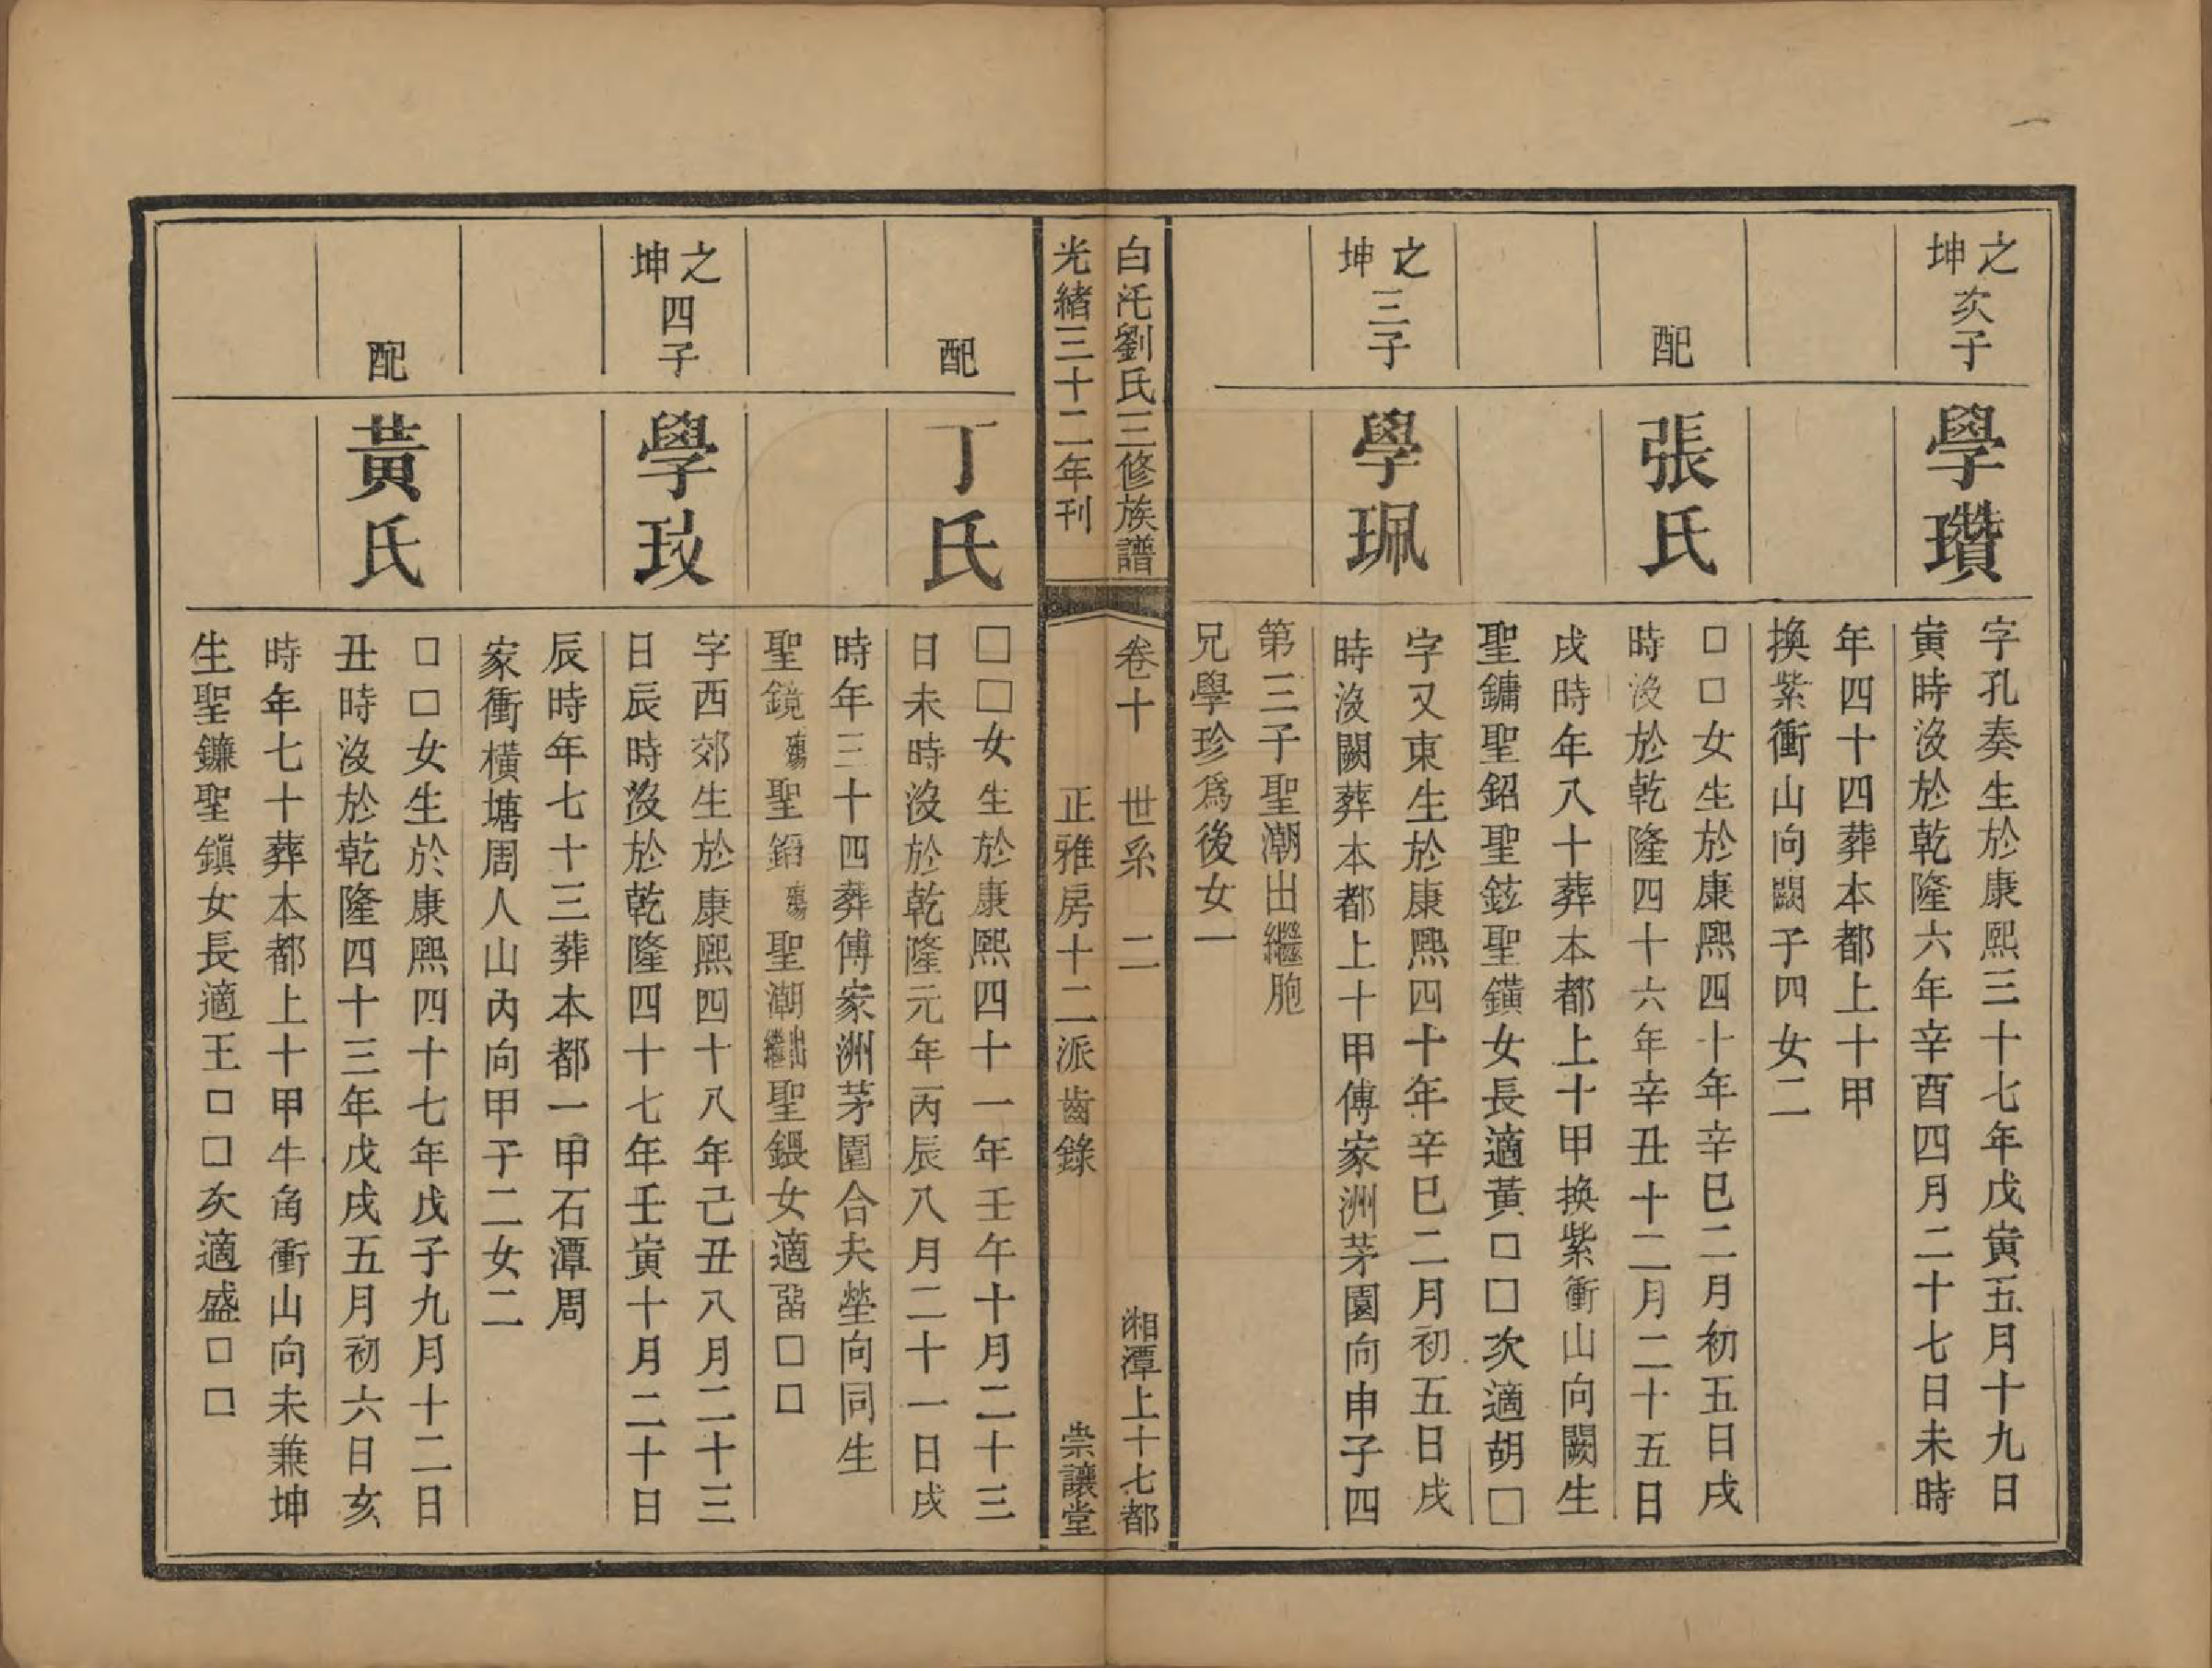 之坤次子
學瓚
字孔奏生於康熙三十七年戊寅五月十九日
寅時沒於乾隆六年辛酉四月二十七日未時
年四十四葬本都上十甲
換紫衝山向闕子四女二
配
張氏
□□女生於康熙四十年辛巳二月初五日戌
時沒於乾隆四十六年辛丑十二月二十五日
戌時年八十葬本都上十甲換紫衝山向闕生
聖鏞聖鉊聖鉉聖鐄女長適黃□□次適胡□
之坤三子
學珮
字又東生於康熙四十年辛巳二月初五日戌
時沒闕葬本都上十甲傅家洲茅園向申子四
第三子聖潮出繼胞
兄學珍爲後女一
白汑劉氏三修族譜
卷十 世系 二
湘潭上十七都
光緒三十二年刊
正雅房十二派齒錄
崇讓堂
配
丁氏
□□女生於康熙四十一年壬午十月二十三
日未時沒於乾隆元年丙辰八月二十一日戌
時年三十四葬傅家洲茅園合夫塋向同生
聖鏡殤聖鉊殤聖潮出繼聖鍡女適□□
之坤四子
學玫
字西郊生於康熙四十八年己丑八月二十三
日辰時沒於乾隆四十七年壬寅十月二十日
辰時年七十三葬本都一甲石潭周
家衝橫塘周人山內向甲子二女二
配
黃氏
□□女生於康熙四十七年戊子九月十二日
丑時沒於乾隆四十三年戊戌五月初六日亥
時年七十葬本都上十甲牛角衝山向未兼坤
生聖鐮聖鎮女長適王□□次適盛□□